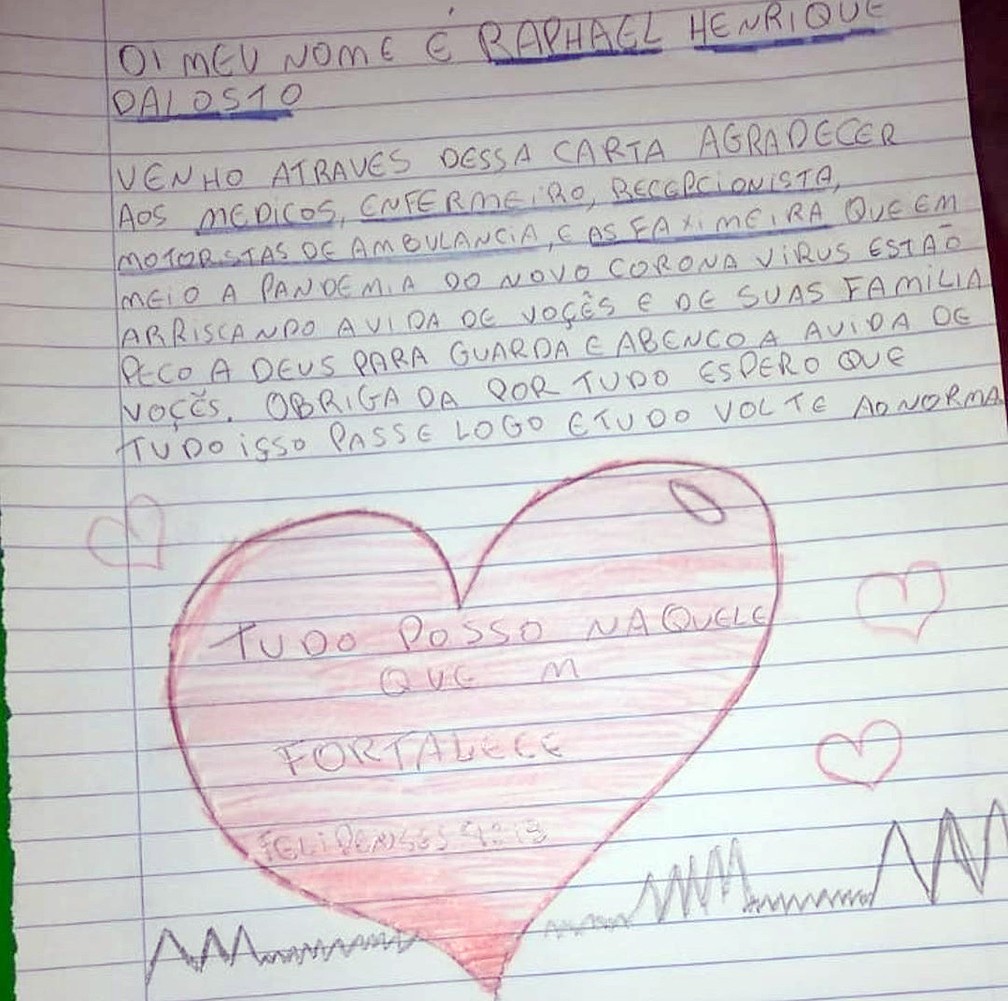 OI MEU NOME É RAPHAEL HENRIQUE
DALOSTO
VENHO ATRAVES DESSA CARTA AGRADECER
AOS MEDICOS, ENFERMEIRO, RECEPCIONISTA,
MOTORISTAS DE AMBULANCIA, E AS FAXIMEIRA QUE EM
MEIO A PANDEMIA DO NOVO CORONA VIRUS ESTÃO
ARRISCANDO A VIDA DE VOÇÊS E DE SUAS FAMILIA
PECO A DEUS PARA GUARDA E ABENCOA A VIDA DE
VOÇÊS. OBRIGADA POR TUDO ESPERO QUE
TUDO IÇSO PASSE LOGO E TUDO VOLTE AO NORMA
TUDO POSSO NAQUELE
QUE M
FORTALECE
FELIPENSES 4:13